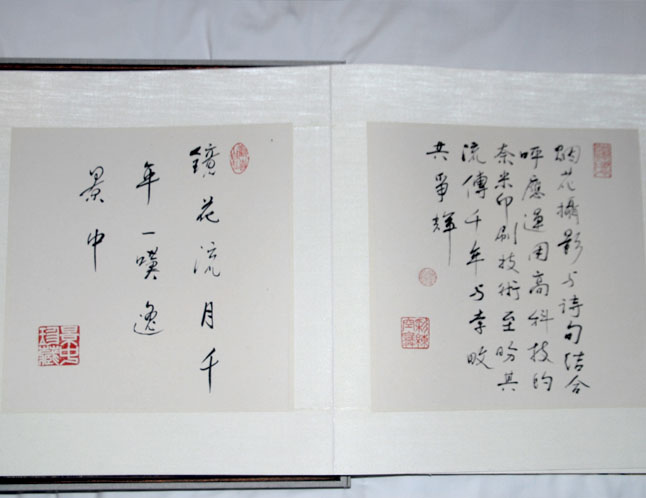 烟花攝影与诗句结合
呼應運用高科技的
奈米印刷技術至盼其
流傳千年与李畋
共爭輝
鏡花流月千
年一嘆
景中
珍藏